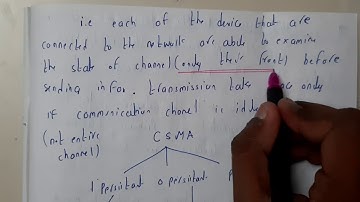 i.e each of the device that are
connected to the network are able to examine
the state of channel (only their front) before
sending info. transmission take place only
if communication chanel is idle
(not entire
channel)
CSMA
1 persistant o persistant. P